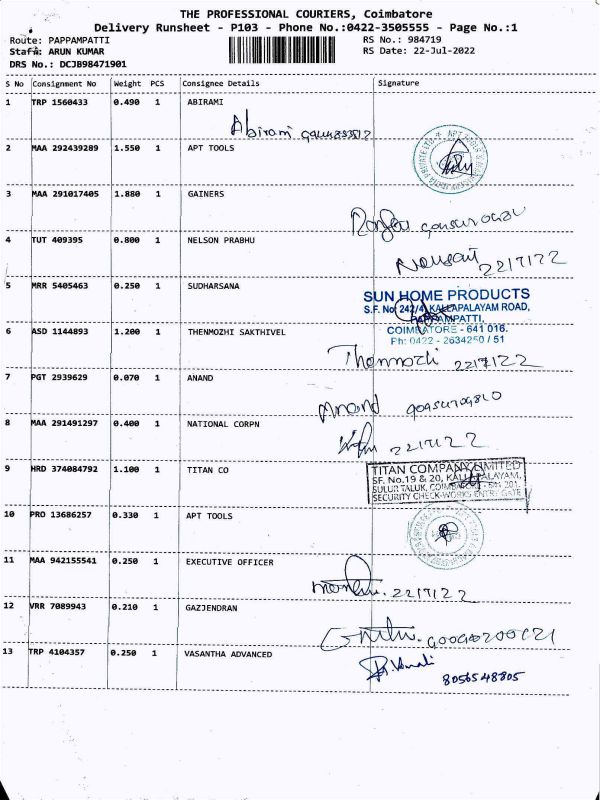 THE PROFESSIONAL COURIERS, Coimbatore
Delivery Runsheet - P103 - Phone No.:0422-3505555 - Page No.:1
Route: PAPPAMPATTI RS No.: 984719
Staff: ARUN KUMAR RS Date: 22-Jul-2022
DRS No.: DCJB98471901
S No Consignment No Weight PCS Consignee Details Signature
1 TRP 1560433 0.490 1 ABIRAMI
Abirami
2 MAA 292439289 1.550 1 APT TOOLS
3 MAA 291017405 1.880 1 GAINERS
4 TUT 409395 0.800 1 NELSON PRABHU
22/7/22
5 MRR 5405463 0.250 1 SUDHARSANA
SUN HOME PRODUCTS
S.F. No. 242/4, KALLAPALAYAM ROAD,
PAPPAMPATTI,
COIMBATORE - 641 016.
Ph: 0422 - 2634250 / 51
6 ASD 1144893 1.200 1 THENMOZHI SAKTHIVEL
Thenmozhi 22/7/22
7 PGT 2939629 0.070 1 ANAND
Anand
8 MAA 291491297 0.400 1 NATIONAL CORPN
22/7/22
9 HRD 374084792 1.100 1 TITAN CO
TITAN COMPANY LIMITED
SF. No.19 & 20, KALLAPALAYAM,
SULUR TALUK, COIMBATORE - 641 201.
SECURITY CHECK-WORKS ENTRY GATE
10 PRO 13686257 0.330 1 APT TOOLS
11 MAA 942155541 0.250 1 EXECUTIVE OFFICER
22/7/22
12 VRR 7089943 0.210 1 GAZJENDRAN
13 TRP 4104357 0.250 1 VASANTHA ADVANCED
8056548805